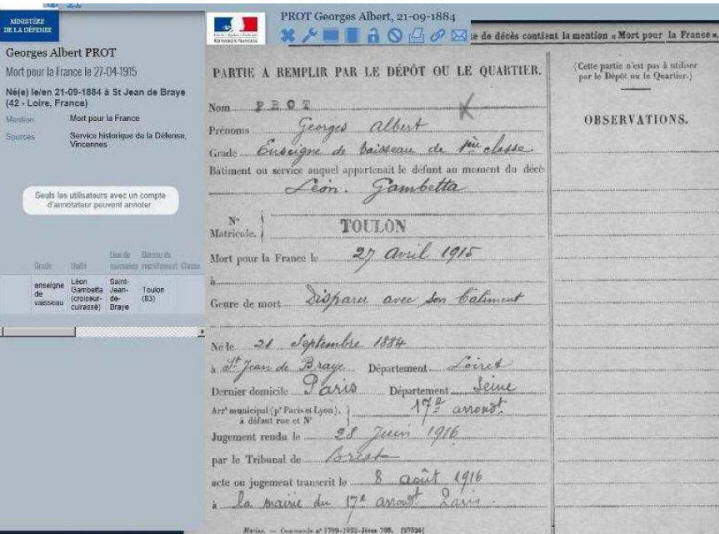 MINISTÈRE
DE LA DÉFENSE
Georges Albert PROT
Mort pour la France le 27-04-1915
Né(e) le/en 21-09-1884 à St Jean de Braye
(42 - Loire, France)
Mention Mort pour la France
Sources Service historique de la Défense,
Vincennes
Seuls les utilisateurs avec un compte
d'annotateur peuvent annoter
Grade Unité Lieu de naissance Bureau de recrutement Classe
enseigne de vaisseau Léon Gambetta (croiseur-cuirassé) Saint-Jean-de-Braye Toulon (83)
PROT Georges Albert, 21-09-1884
te de décès contient la mention « Mort pour la France ».
PARTIE A REMPLIR PAR LE DÉPÔT OU LE QUARTIER.
(Cette partie n'est pas à utiliser
par le Dépôt ou le Quartier.)
OBSERVATIONS.
Nom PROT
Prénoms Georges Albert
Grade Enseigne de vaisseau de 1ère classe
Bâtiment ou service auquel appartenait le défunt au moment du décè
Léon. Gambetta
N°
Matricule. TOULON
Mort pour la France le 27 avril 1915
à
Genre de mort Disparu avec son bâtiment
Né le 21 Septembre 1884
à St Jean de Braye Département Loiret
Dernier domicile Paris Département Seine
Arrt municipal (pr Paris et Lyon), à défaut rue et N° 17e arrondt.
Jugement rendu le 28 Juin 1916
par le Tribunal de Brest
acte ou jugement transcrit le 8 août 1916
à la mairie du 17e arrondt Paris.
Marine. — Commande n° 1799-1922-